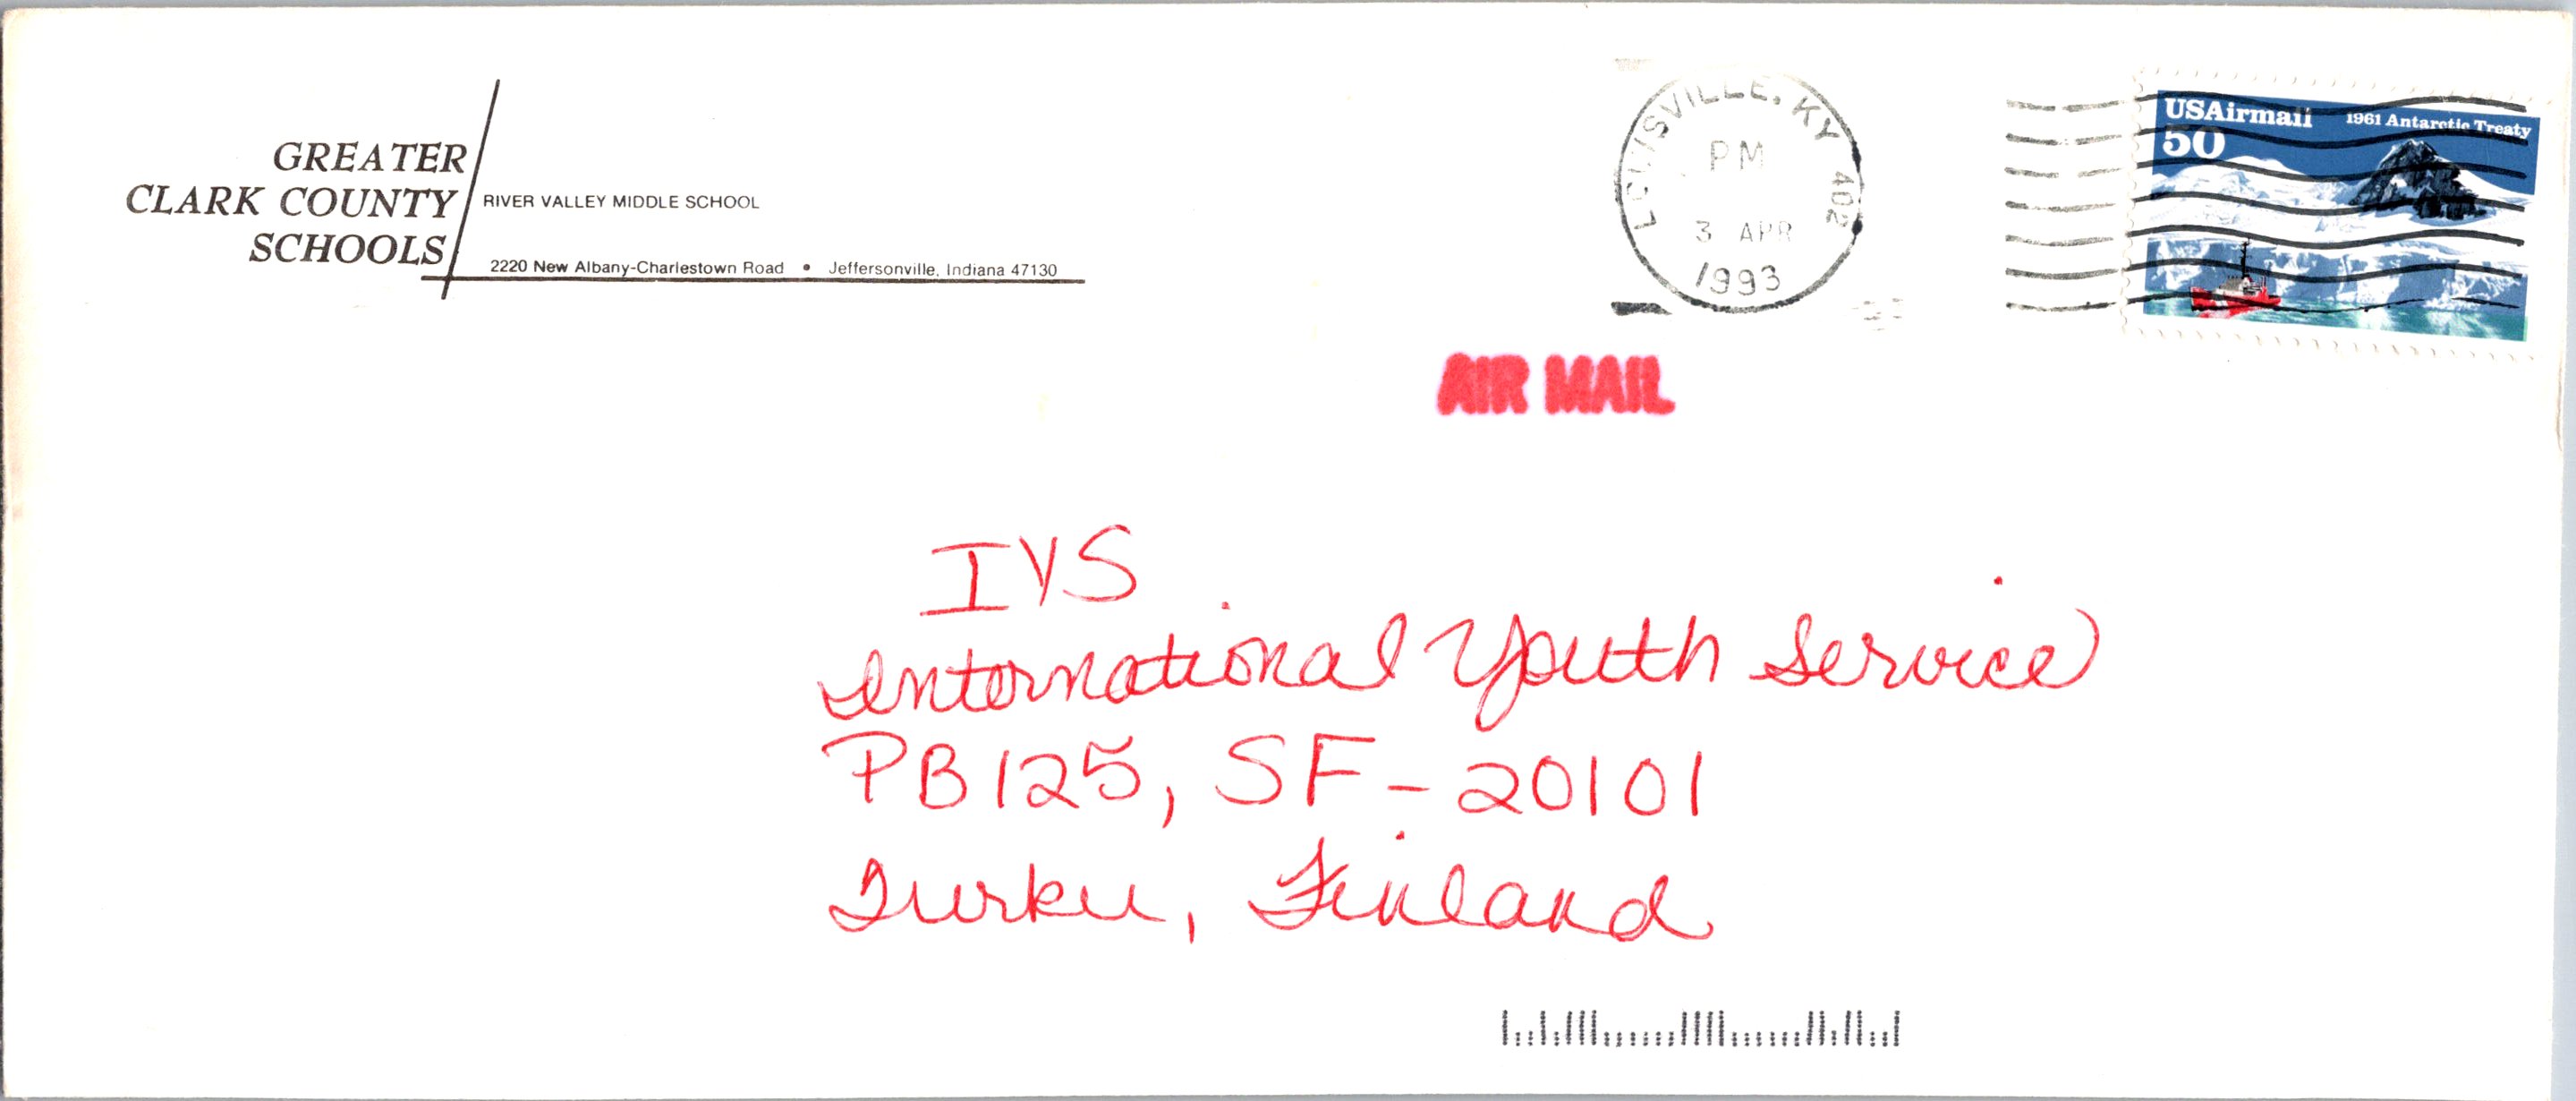 GREATER
CLARK COUNTY
SCHOOLS
RIVER VALLEY MIDDLE SCHOOL
2220 New Albany-Charlestown Road • Jeffersonville, Indiana 47130
LOUISVILLE, KY 402
PM
3 APR
1993
USAirmail
50
1961 Antarctic Treaty
AIR MAIL
IYS
International Youth Service
PB 125, SF - 20101
Turku, Finland